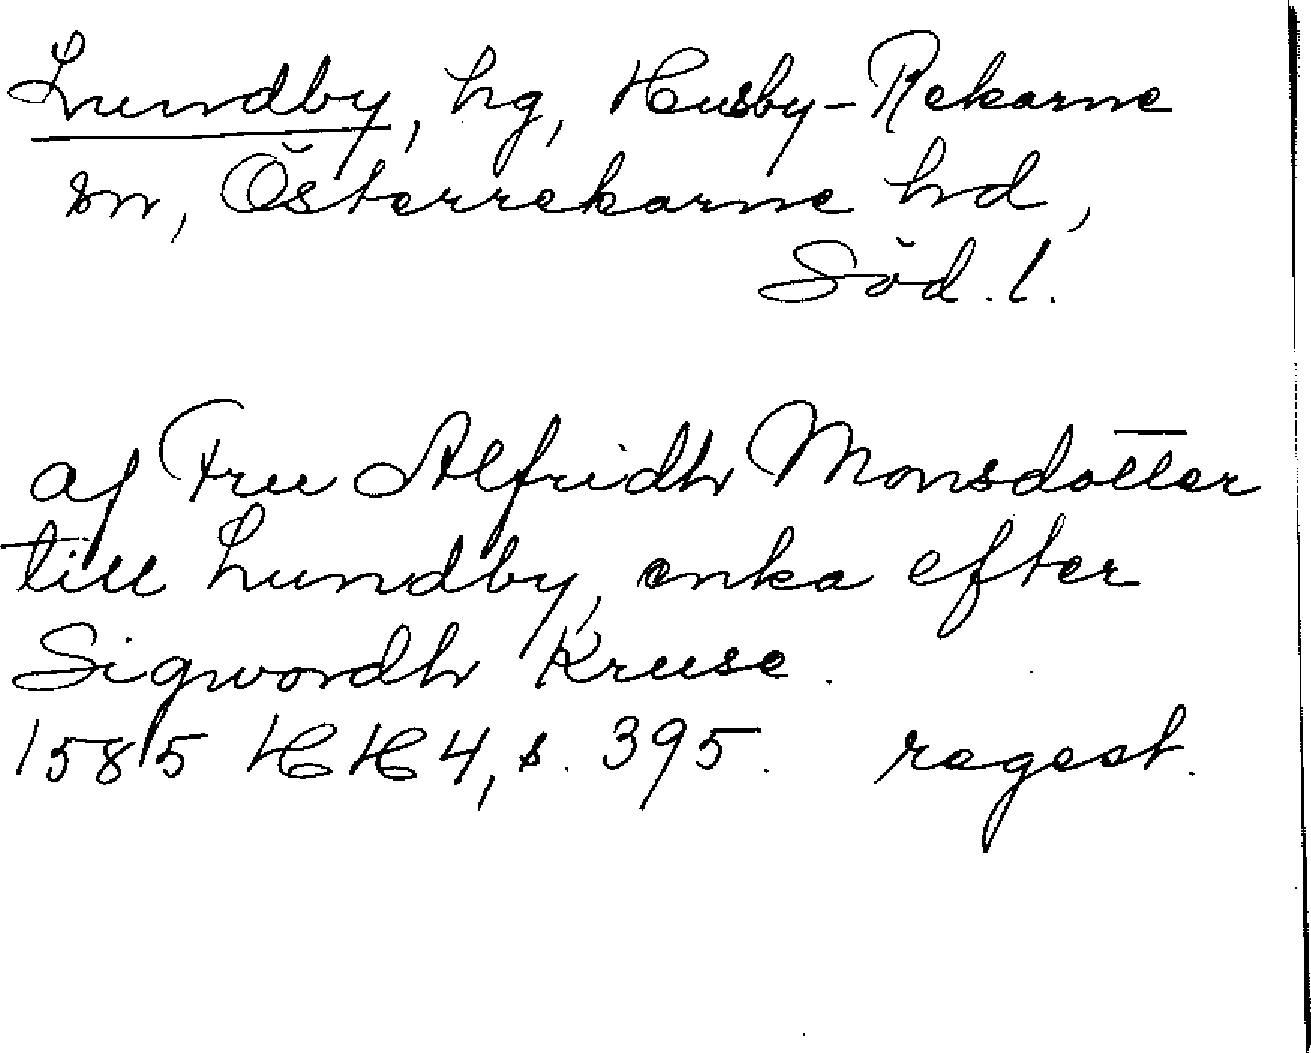 Lundby, hg, Husby-Rekarne
sn, Österrekarne hd,
Söd. l.
af Fru Alfridh Monsdotter
till Lundby, enka efter
Sigwordh Kruse.
1585 HH 4, s. 395. regest.